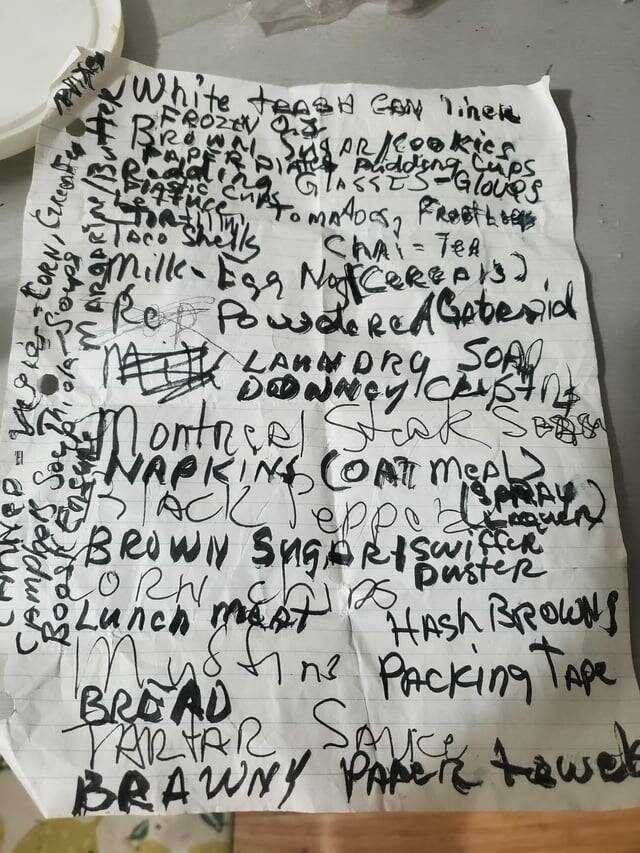 White TRASH CAN liner
FROZEN
BROWN SUGAR/COOKIES
PAPER PLATES Pudding Cups
Reading GLASSES-Gloves
PLASTIC CUPS
Lettuce, TOMATOES,
TORTILLA
TACO Shells CHAI = TEA
Milk - Egg Nog (CEREALS)
Powdered/Gatoraid
LAUNDRY SOAP
DOWNEY
Montreal Steak
NAPKINS (OATMEAL)
Black Pepper (SPRAY
BROWN SUGAR/SWIFFER
DUSTER
CORN Chips
Lunch MEAT HASH BROWNS
Muffins PACKING TAPE
BREAD
TARTAR Sauce
BRAWNY PAPER towels
MARGARINE/Butter
CANNED = Vegies = CORN,
Campbells Soups